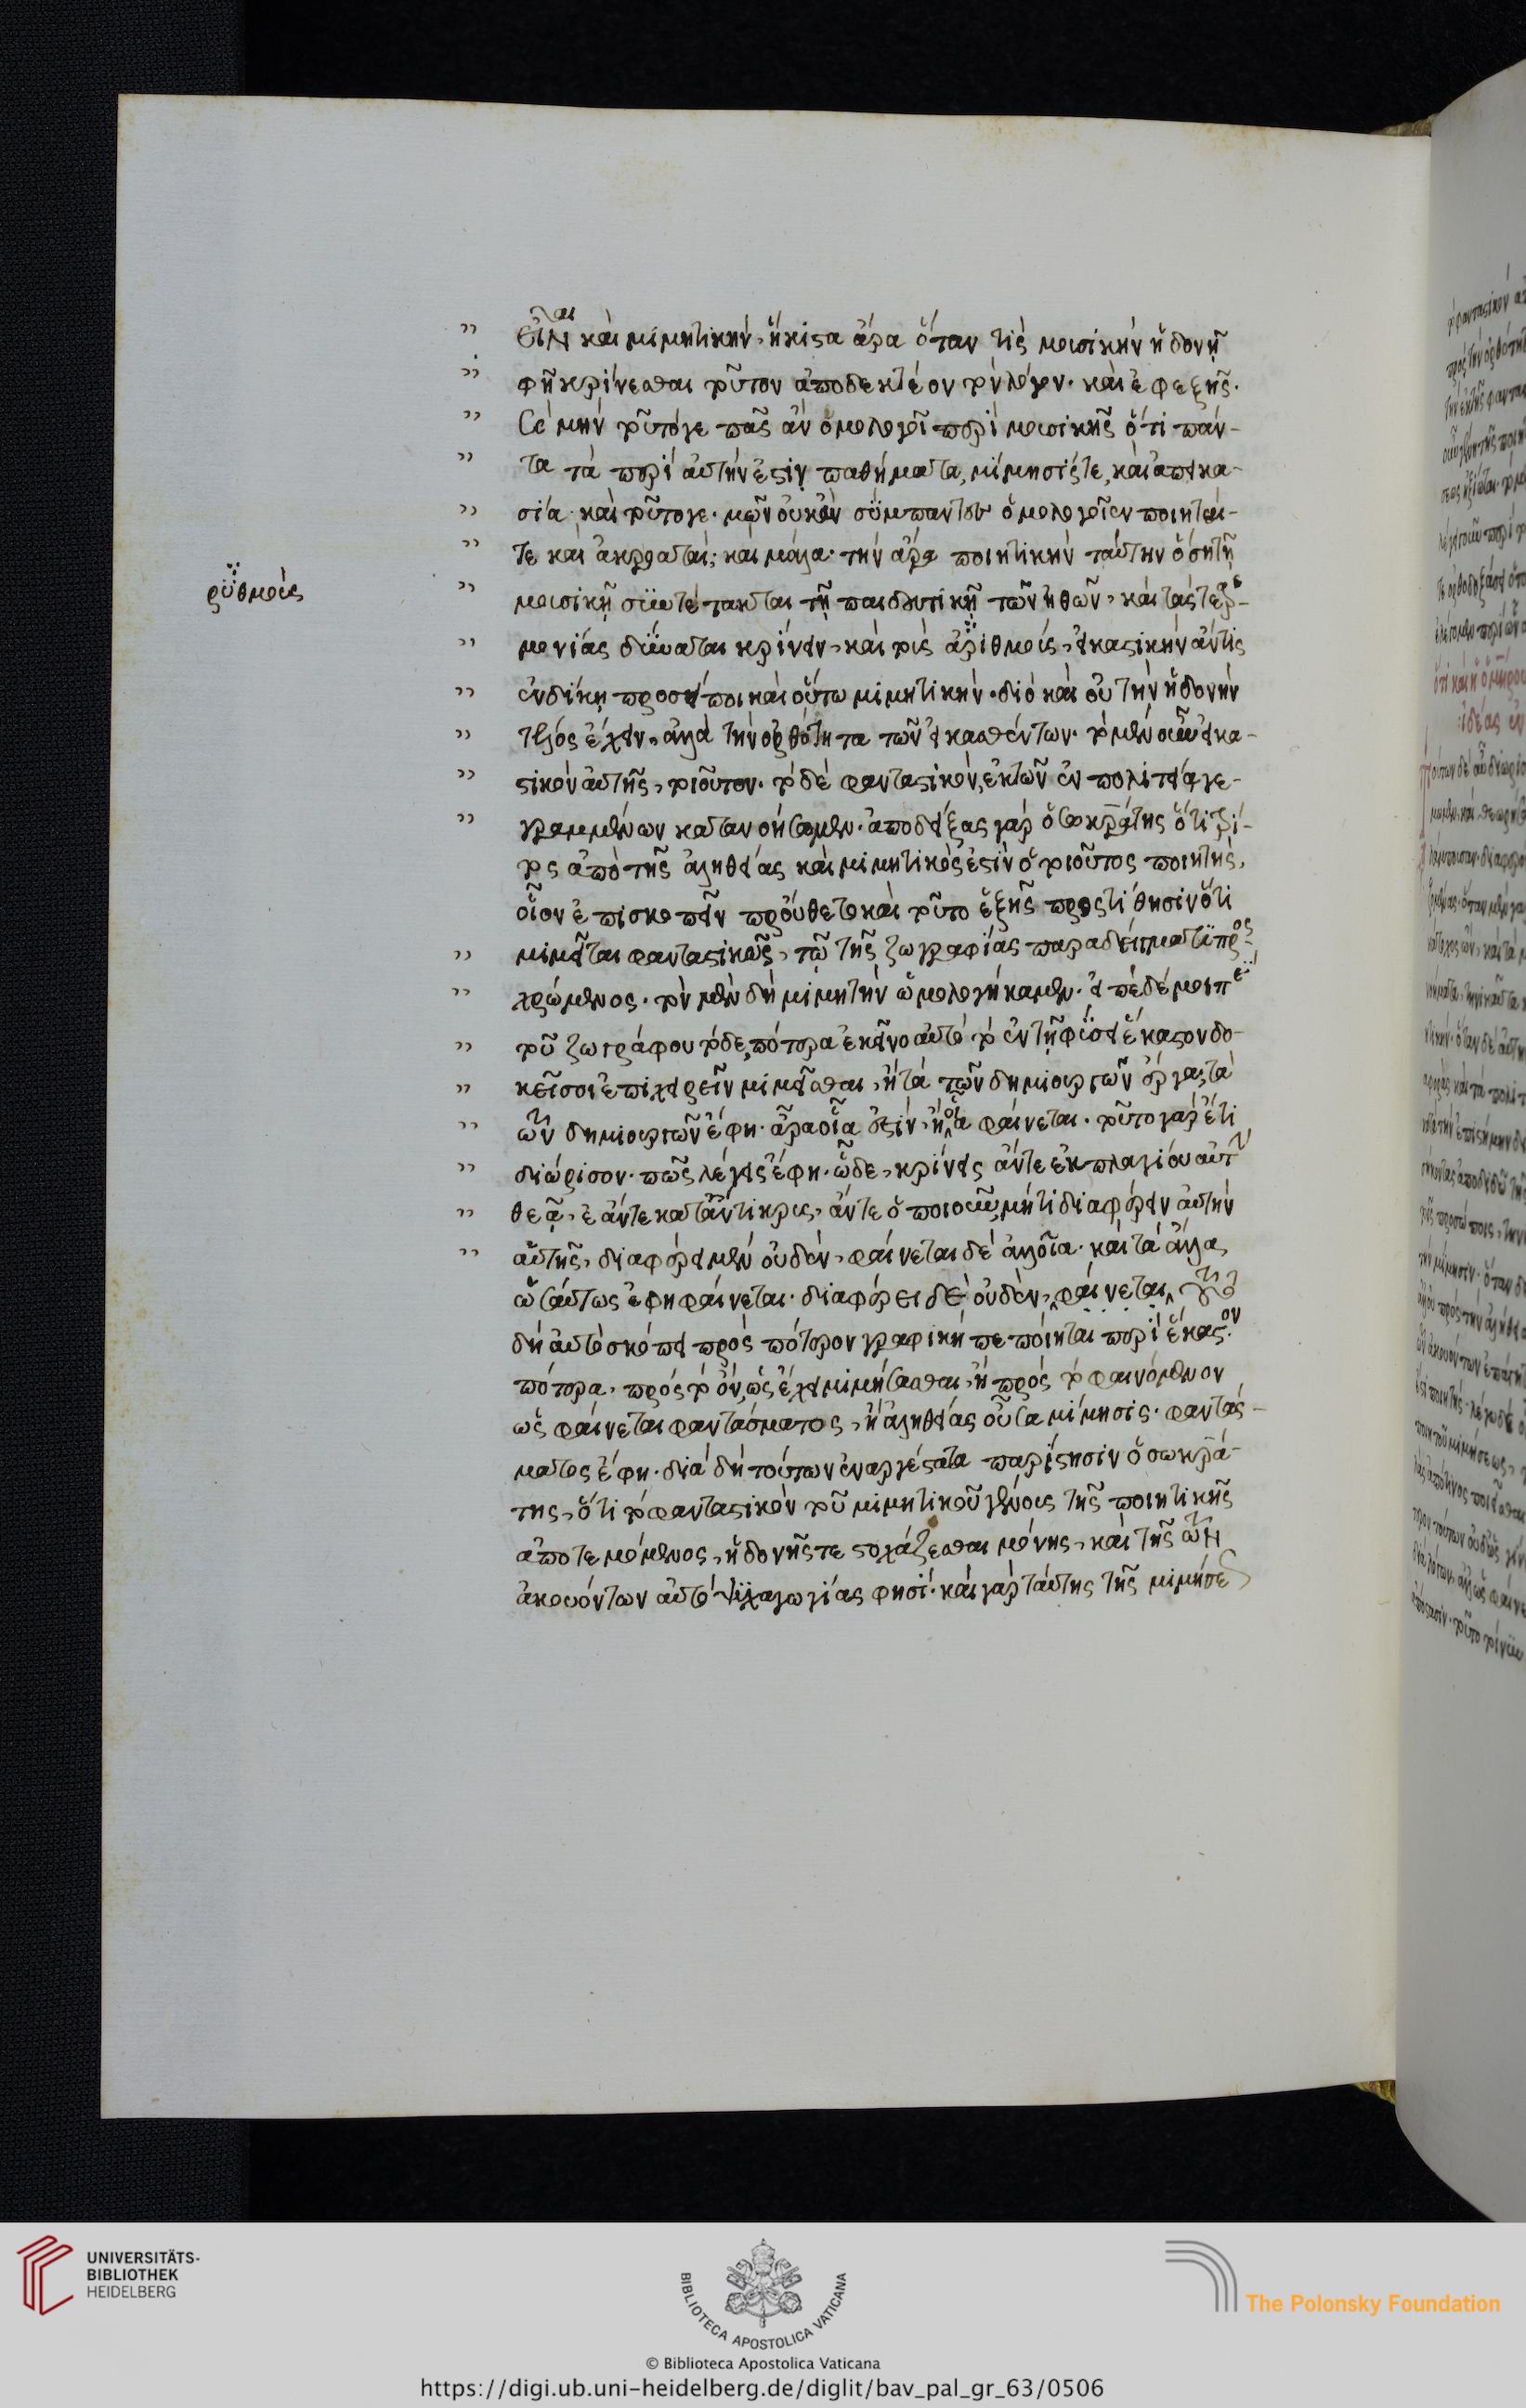 εἶναι καὶ μιμητικήν· ἥκιστα ἄρα ὅταν τὶς μουσικὴν ἡδονῇ
φῇ κρίνεσθαι τοῦτον ἀποδεκτέον τὸν λόγον· καὶ ἐφεξῆς·
Καὶ μὴν τοῦτό γε πᾶς ἂν ὁμολογοῖ περὶ μουσικῆς ὅτι πάν-
τα τὰ περὶ αὐτήν ἐστιν παθήματα, μίμησίς τε, καὶ ἀπεικα-
σία· καὶ τοῦτο γε· μῶν οὐκ ἂν σύμπαντες ὁμολογοῖεν ποιηταί-
τε καὶ ἀκροαταί; καὶ μάλα· τὴν ἄρα ποιητικὴν ταύτην ὅση τῇ
ῥυθμοὺς
μουσικῇ συντέτακται τῇ παιδευτικῇ τῶν ἠθῶν, καὶ τάς τε ἁρ-
μονίας δύναται κρίνειν, καὶ τοὺς ἀριθμούς, εἰκαστικὴν ἄν τις
ἐν δίκῃ προσείποι καὶ οὕτω μιμητικήν· διὸ καὶ οὐ τὴν ἡδονὴν
τέλος ἔχειν, ἀλλὰ τὴν ὀρθότητα τῶν εἰκασθέντων· τὸ μὲν οὖν εἰκα-
στικὸν αὐτῆς, τοιοῦτον· τὸ δὲ φανταστικόν, ἐκ τῶν ἐν πολιτείᾳ γε-
γραμμένων κατανοήσομεν· ἀποδείξας γὰρ ὁ σωκράτης ὅτι τρί-
τος ἀπὸ τῆς ἀληθείας καὶ μιμητικός ἐστιν ὁ τοιοῦτος ποιητής,
οἷον ἐπισκοπεῖν προύθετο καὶ τοῦτο ἑξῆς προστίθησιν ὅτι
μιμεῖται φανταστικῶς, τῷ τῆς ζωγραφίας παραδείγματι προσ-
χρώμενος· τὸν μὲν δὴ μιμητὴν ὡμολογήκαμεν· εἰπὲ δέ μοι περὶ
τοῦ ζωγράφου τόδε, πότερα ἐκεῖνο αὐτὸ τὸ ἐν τῇ φύσει ἕκαστον δο-
κεῖ σοι ἐπιχειρεῖν μιμεῖσθαι, ἢ τὰ τῶν δημιουργῶν ἔργα; τὰ
τῶν δημιουργῶν ἔφη· ἆρα οἷα ἐστὶν, ἢ οἷα φαίνεται· τοῦτο γὰρ ἔτι
διώρισον· πῶς λέγεις ἔφη· ὧδε, κρίνεις ἄντε ἐκ πλαγίου αὐτὴν
θεᾷ, ἐάντε καταντίκρυς, ἄντε ὁποιοῦν, μή τι διαφέρειν αὐτὴν
αὑτῆς, διαφέρει μὲν οὐδὲν, φαίνεται δὲ ἀλλοῖα· καὶ τὰ ἄλλα
ὡσαύτως ἔφη φαίνεται· διαφέρει δὲ οὐδὲν, φαίνεται,
δὴ αὐτὸ σκόπει πρὸς πότερον γραφικὴ πεποίηται περὶ ἕκαστον
πότερα, πρὸς τὸ ὄν, ὡς ἔχει μιμήσασθαι, ἢ πρὸς τὸ φαινόμενον
ὡς φαίνεται φαντάσματος, ἢ ἀληθείας οὖσα μίμησις· φαντάσ-
ματος ἔφη· διὰ δὴ τούτων ἐναργέστατα παρίστησιν ὁ σωκρά-
της, ὅτι τὸ φανταστικὸν τοῦ μιμητικοῦ γένους τῆς ποιητικῆς
ἀποτεμόμενος, ἡδονῆς τε στοχάζεσθαι μόνης, καὶ τῆς τῶν
ἀκουόντων αὐτὸ ψυχαγωγίας φησί· καὶ γὰρ ταύτης τῆς μιμήσε
UNIVERSITÄTS-
BIBLIOTHEK
HEIDELBERG
BIBLIOTECA APOSTOLICA VATICANA
The Polonsky Foundation
© Biblioteca Apostolica Vaticana
https://digi.ub.uni-heidelberg.de/diglit/bav_pal_gr_63/0506